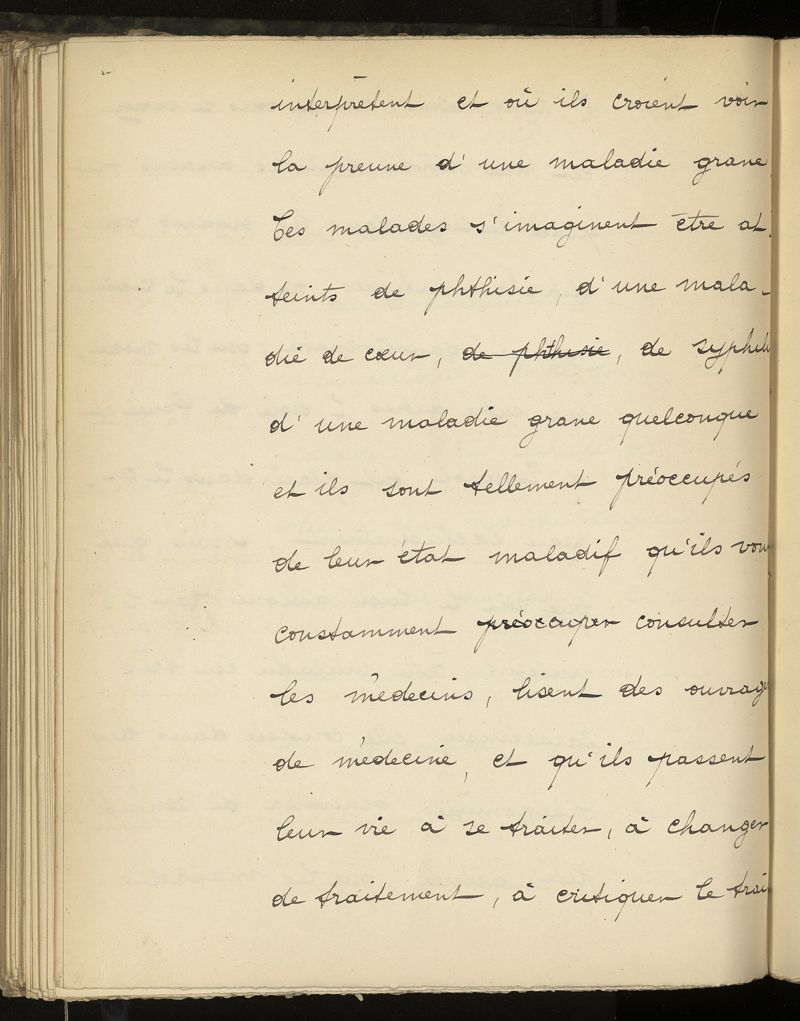 interprètent et où ils croient voir
la preuve d'une maladie grave
Ces malades s'imaginent être at
teints de phthisie, d'une mala-
die de cœur, de phthisie, de syphili
d'une maladie grave quelconque
et ils sont tellement préoccupés
de leur état maladif qu'ils von
constamment préoccuper consulter
les médecins, lisent des ouvrag
de médecine, et qu'ils passent
leur vie à se traiter, à changer
de traitement, à critiquer le trai